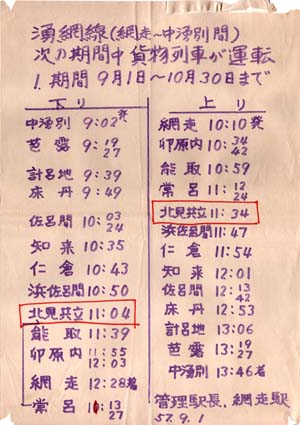 湧網線(網走~中湧別間)
次の期間中貨物列車が運転
1. 期間 9月1日~10月30日まで
下り
中湧別 9:02発
芭露 9:19/27
計呂地 9:39
床丹 9:49
佐呂間 10:03/24
知来 10:35
仁倉 10:43
浜佐呂間 10:50
北見共立 11:04
能取 11:39
卯原内 11:55/12:03
網走 12:28着
常呂 11:13/27
上り
網走 10:10発
卯原内 10:34/42
能取 10:59
常呂 11:12/24
北見共立 11:34
浜佐呂間 11:47
仁倉 11:54
知来 12:01
佐呂間 12:13/42
床丹 12:53
計呂地 13:06
芭露 13:19/27
中湧別 13:46着
管理駅長、網走駅
57.9.1